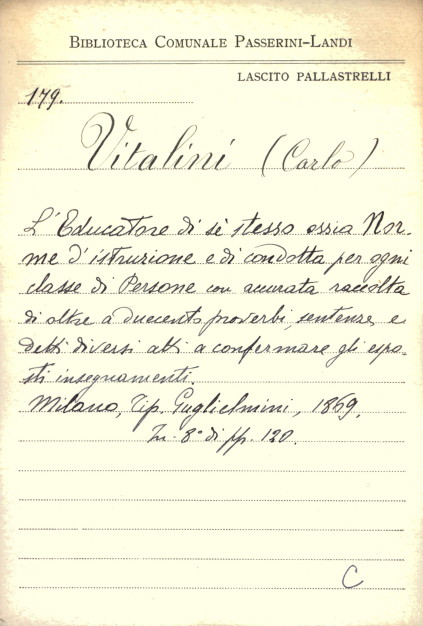 BIBLIOTECA COMUNALE PASSERINI-LANDI
LASCITO PALLASTRELLI
179.
Vitalini (Carlo)
L'Educatore di sè stesso ossia Nor-
me d'istruzione e di condotta per ogni
classe di Persone con accurata raccolta
di oltre a duecento proverbi, sentenze e
detti diversi atti a confermare gli espo-
sti insegnamenti.
Milano, Tip. Guglielmini, 1869.
In-8° di pp. 120.
C